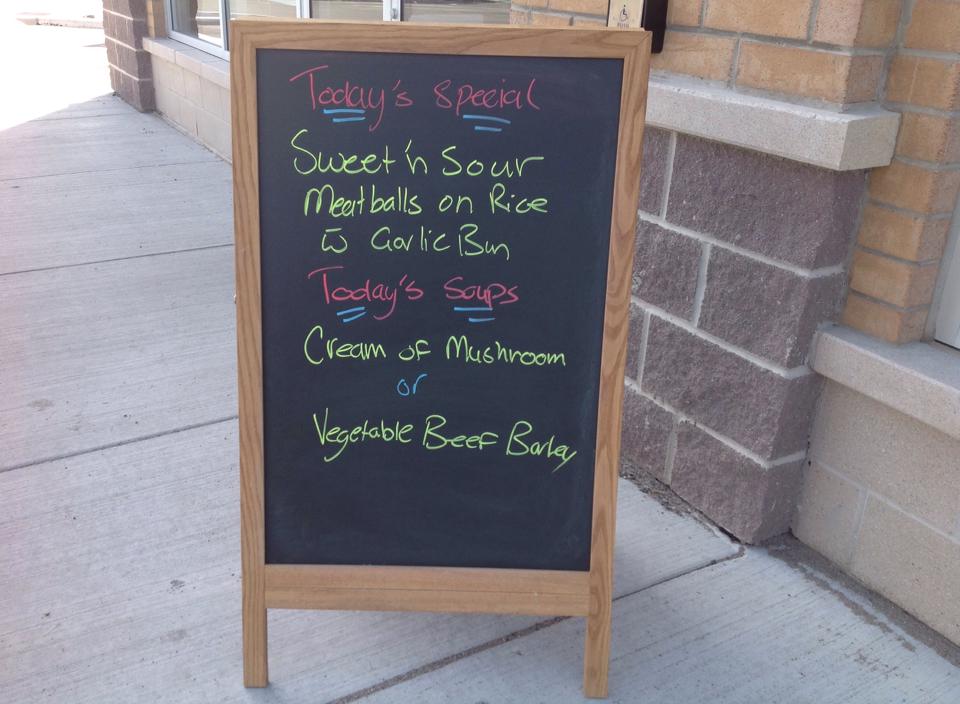 Today's Special
Sweet 'n Sour
Meatballs on Rice
w Garlic Bun
Today's Soups
Cream of Mushroom
or
Vegetable Beef Barley